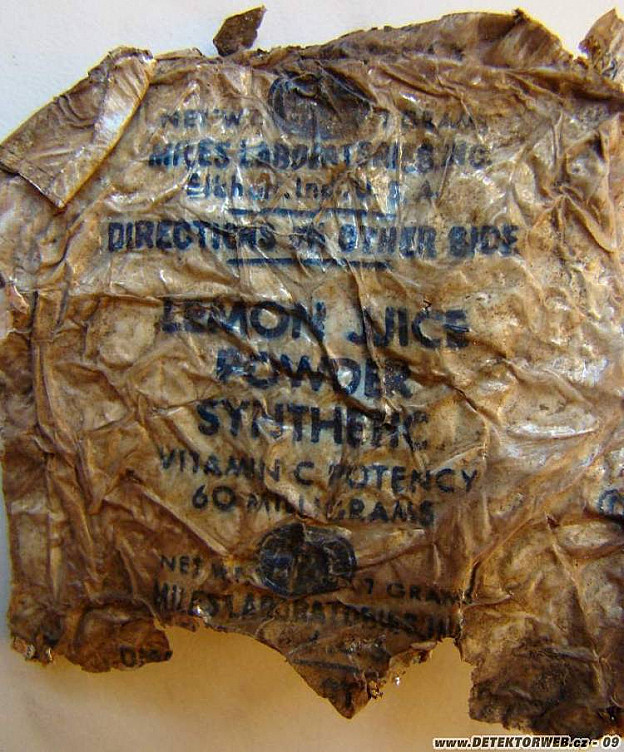 NET W 7 GRAM
MILES LABORATORIES, INC.
Elkhart, Ind. U.S.A.
DIRECTIONS ON OTHER SIDE
LEMON JUICE
POWDER
SYNTHETIC
VITAMIN C POTENCY
60 MILLIGRAMS
NET WT. 7 GRAM
MILES LABORATORIES, IN
www.DETEKTORWEB.cz - 09